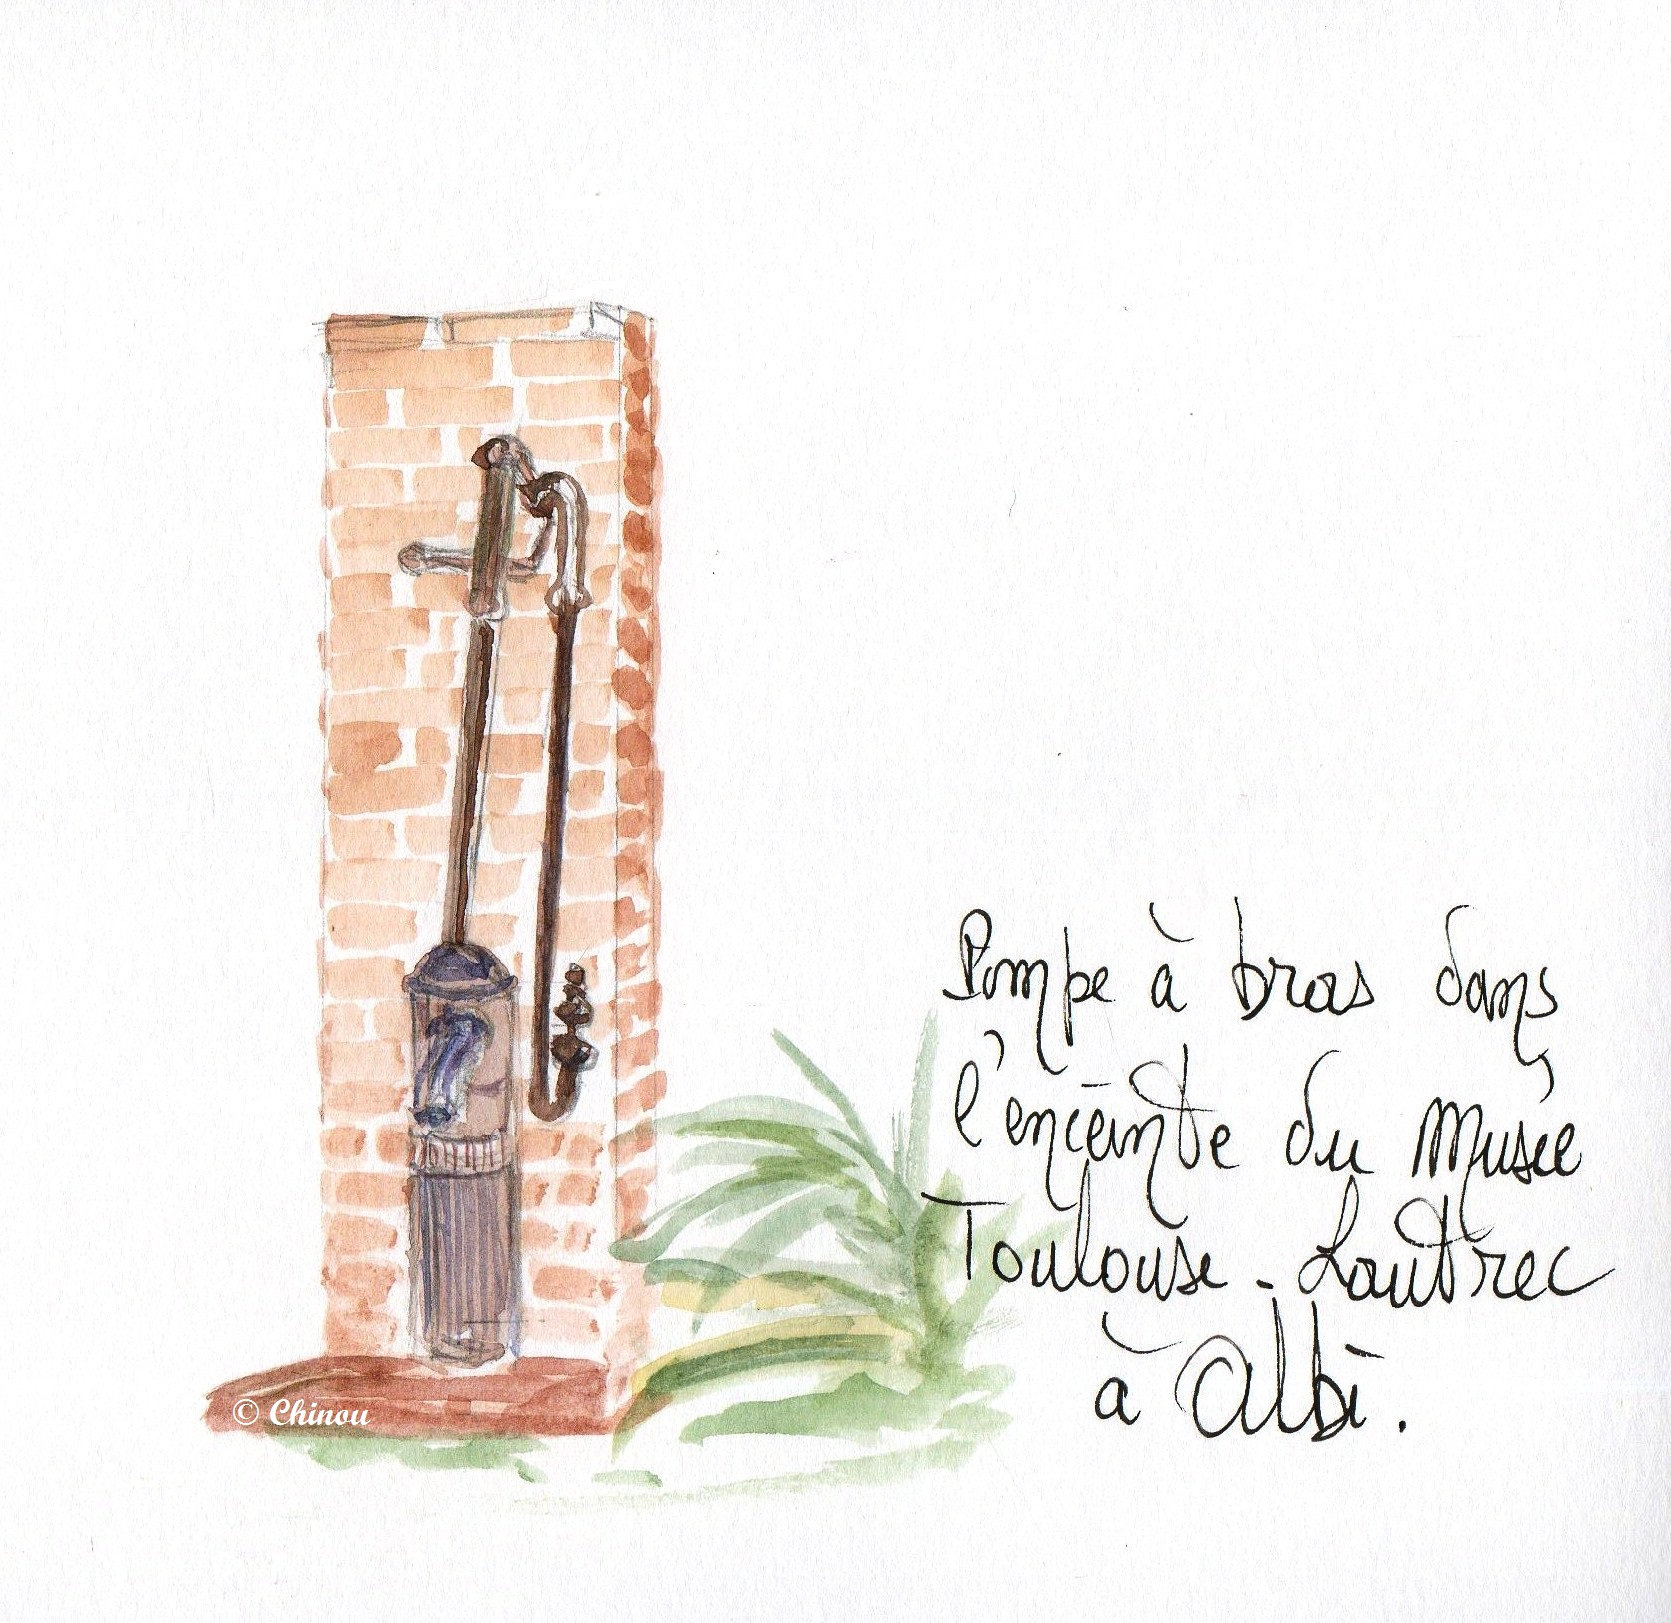 Pompe à bras dans
l'enceinte du Musée
Toulouse-Lautrec
à Albi.
© Chinou